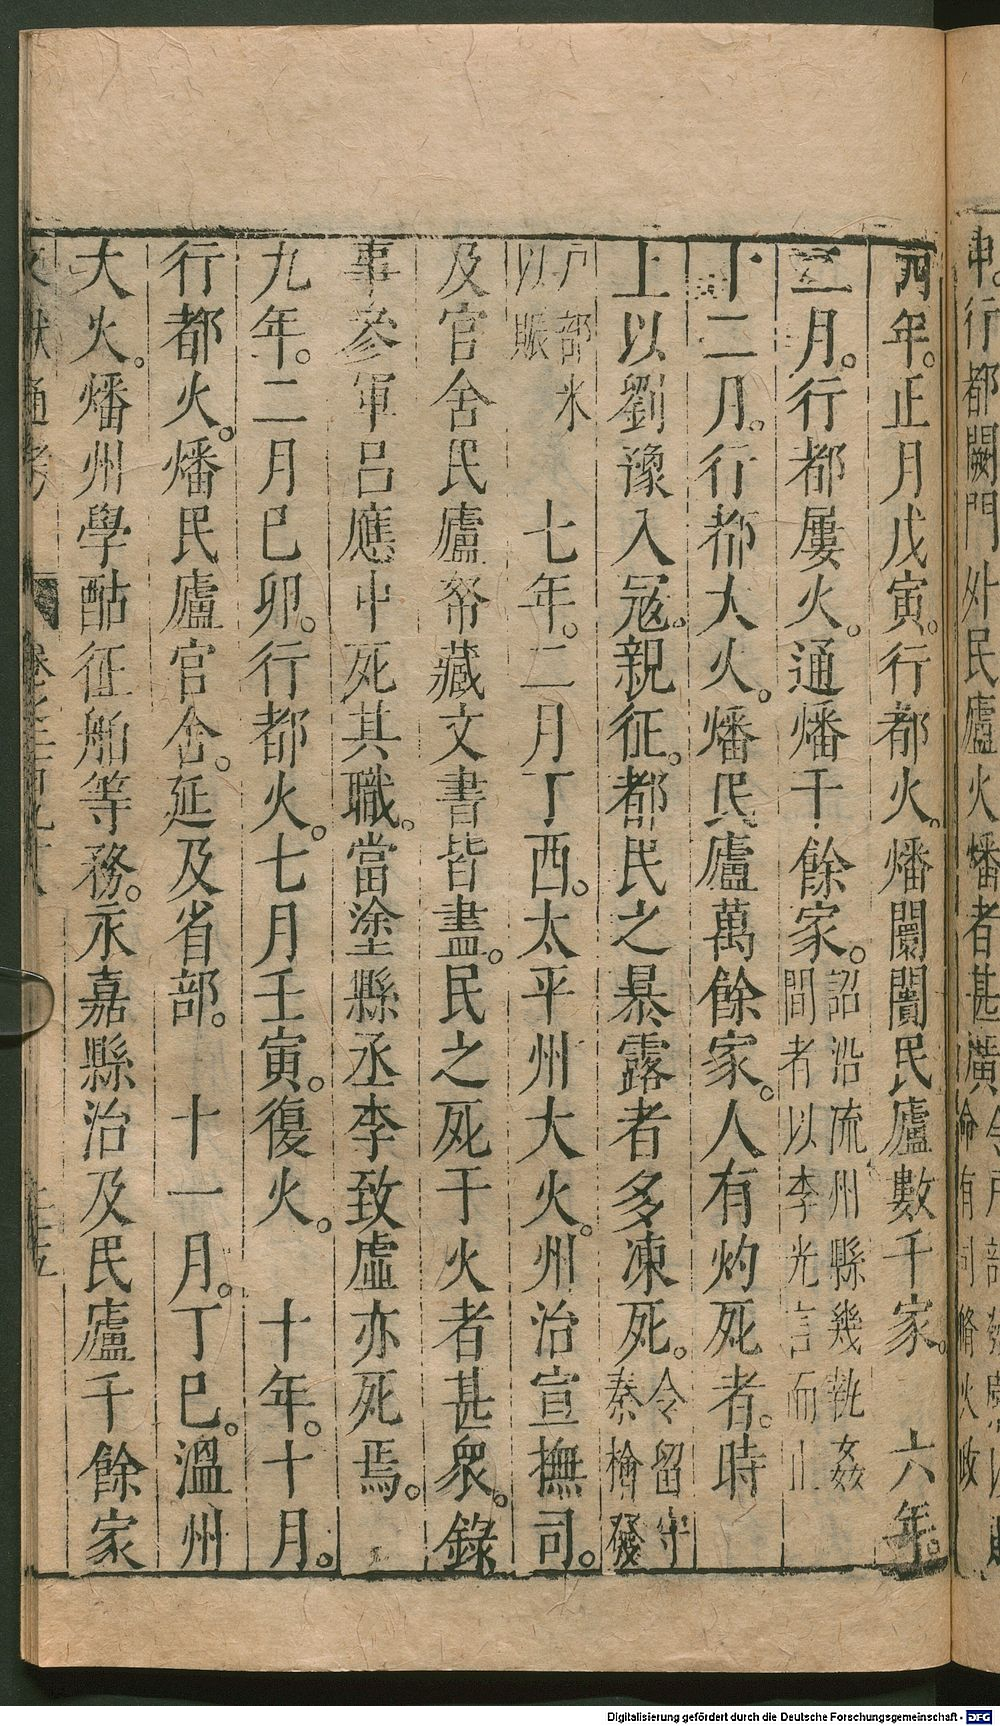 四年。正月戊寅。行都火。燔闤闠民廬數千家。　六年。
二月。行都屢火。通燔千餘家。詔沿流州縣幾執姦間者以李光言而止
十二月。行都大火。燔民廬萬餘家。人有灼死者。時
上以劉豫入冦。親征。都民之暴露者多凍死。令留守秦檜發
戸部米以賑　七年。二月丁酉。太平州大火。州治宣撫司。
及官舍民廬帑藏文書皆盡。民之死于火者甚衆。錄
事參軍呂應中死其職。當塗縣丞李致虛亦死焉。
九年。二月巳卯。行都火。七月壬寅。復火。　十年。十月。
行都火。燔民廬官舍。延及省部。　十一月。丁巳。溫州
大火。燔州學酤征舶等務。永嘉縣治及民廬千餘家
文獻通考　卷之二百九十八　二十五
行都闕門外民廬火燔者甚
命有司脩火政
Digitalisierung gefördert durch die Deutsche Forschungsgemeinschaft - DFG